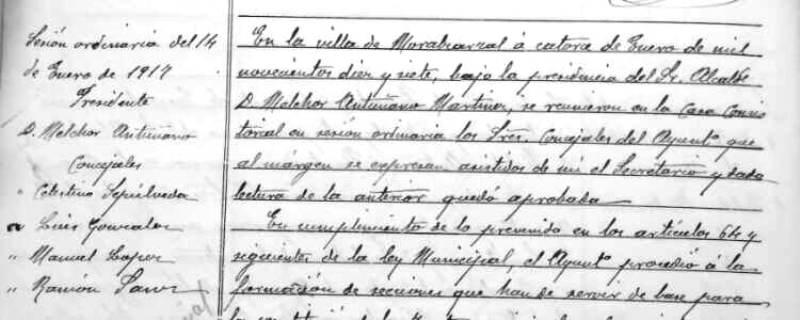 Sesión ordinaria del 14
de Enero de 1917
Presidente
D. Melchor Antuñano
Concejales
" Celestino Sepúlveda
" Luis Gonzalez
" Manuel Lopez
" Ramón Sanz
En la villa de Moralzarzal á catorce de Enero de mil
novecientos diez y siete, bajo la presidencia del Sr. Alcalde
D. Melchor Antuñano Martinez, se reunieron en la Casa Consis
torial en sesión ordinaria los Sres. Concejales del Ayuntº que
al márgen se expresan asistidos de mi el Secretario y dada
lectura de la anterior quedó aprobada
En cumplimiento de lo prevenido en los artículos 64 y
siguientes de la ley Municipal, el Ayuntº procedió á la
formación de secciones que han de servir de base para